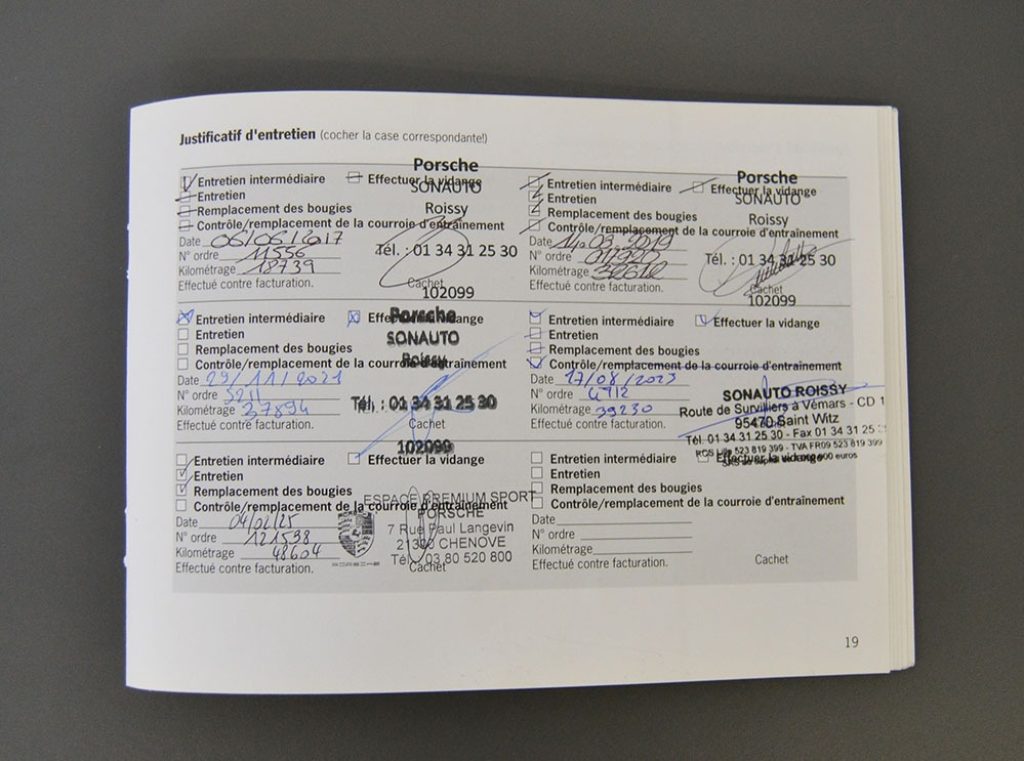 Justificatif d'entretien (cocher la case correspondante!)
Entretien intermédiaire
Effectuer la vidange
Entretien
Remplacement des bougies
Contrôle/remplacement de la courroie d'entraînement
Date 06/06/2017
N° ordre 11556
Kilométrage 18739
Effectué contre facturation.
Cachet
Porsche
SONAUTO
Roissy
Tél. : 01 34 31 25 30
102099
Entretien intermédiaire
Effectuer la vidange
Entretien
Remplacement des bougies
Contrôle/remplacement de la courroie d'entraînement
Date 14.03.2019
N° ordre
Kilométrage
Effectué contre facturation.
Cachet
Porsche
SONAUTO
Roissy
Tél. : 01 34 31 25 30
102099
Entretien intermédiaire
Effectuer la vidange
Entretien
Remplacement des bougies
Contrôle/remplacement de la courroie d'entraînement
Date 29/11/2021
N° ordre
Kilométrage 37894
Effectué contre facturation.
Cachet
Porsche
SONAUTO
Roissy
Tél. : 01 34 31 25 30
102099
Entretien intermédiaire
Effectuer la vidange
Entretien
Remplacement des bougies
Contrôle/remplacement de la courroie d'entraînement
Date 17/08/2023
N° ordre
Kilométrage 39230
Effectué contre facturation.
SONAUTO ROISSY
Route de Survilliers à Vémars - CD 1
95470 Saint Witz
Tél. 01 34 31 25 30 - Fax 01 34 31 25
523 819 399 - TVA FR09 523 819 399
euros
Entretien intermédiaire
Effectuer la vidange
Entretien
Remplacement des bougies
Contrôle/remplacement de la courroie d'entraînement
Date 04/02/25
N° ordre 121538
Kilométrage 48604
Effectué contre facturation.
Cachet
ESPACE PREMIUM SPORT
PORSCHE
7 Rue Paul Langevin
21300 CHENOVE
Tél. 03 80 520 800
Entretien intermédiaire
Effectuer la vidange
Entretien
Remplacement des bougies
Contrôle/remplacement de la courroie d'entraînement
Date
N° ordre
Kilométrage
Effectué contre facturation.
Cachet
19